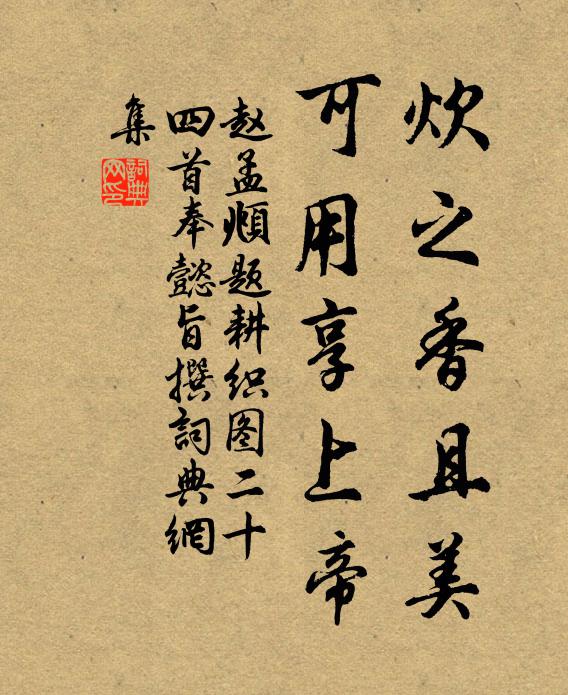 炊之香且美
可用享上帝
赵孟頫题耕织图二十
四首奉懿旨撰詞典網
集
詞典网印